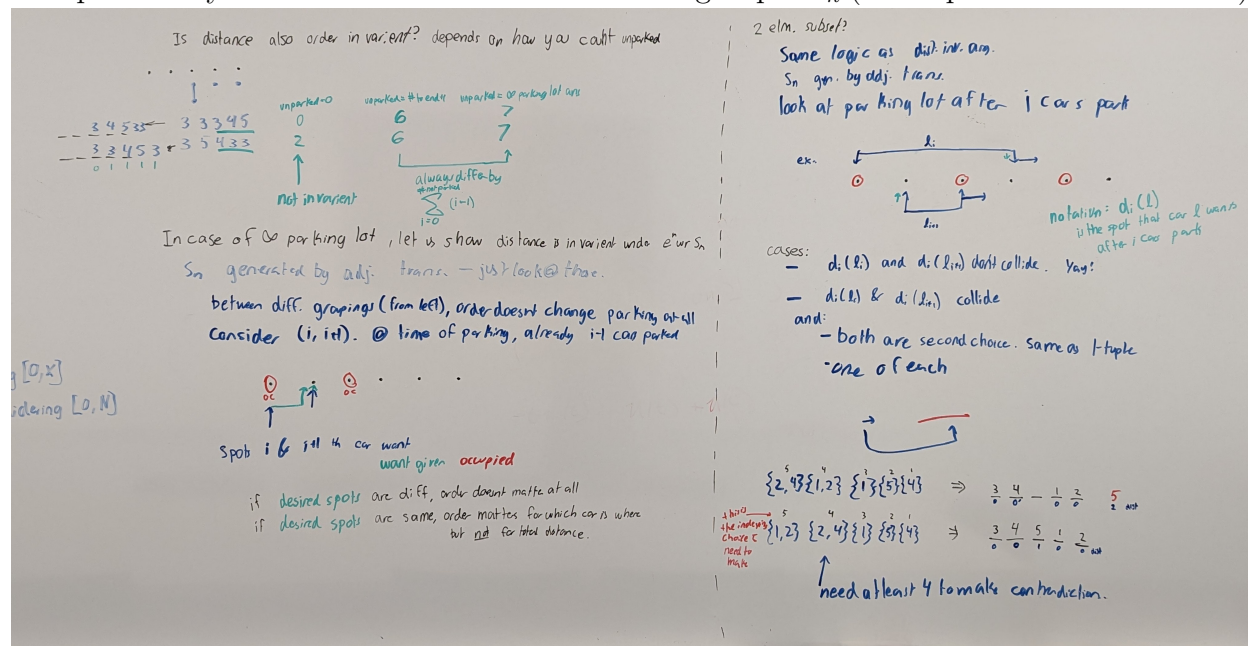 Is distance also order in varient? depends on how you count unparked
unparked=0
unparked=#to end+1
unparked=∞ parking lot ans
3 4 5 3 5 ← 3 3 3 4 5
0
6
7
3 3 4 5 3 3 5 4 3 3
2
6
7
0 1 1 1 1
not invarient
always differ by
#not parked
Σ (i-1)
i=0
In case of ∞ parking lot, let us show distance is invarient under Sn
Sn generated by adj. trans. - just look @ those.
between diff. groupings (from left), order doesnt change parking at all
Consider (i, i+1). @ time of parking, already i-1 cars parked
oc
oc
spots i & i+1 th car want
want given occupied
if desired spots are diff, order doesnt matter at all
if desired spots are same, order matters for which car is where
but not for total distance.
[0,x]
idering [0,N]
2 elm. subset?
Same logic as dist. inv. arg.
Sn gen. by adj. trans.
look at parking lot after i cars park
ex.
li
li+1
notation: di(l)
is the spot that car l wants
after i cars park
cases:
- di(li) and di(li+1) dont collide. Yay!
- di(li) & di(li+1) collide
and:
- both are second choice. same as 1-tuple
- one of each
5 4 3 2 1
{2,4}{1,2}{1}{5}{4} ⇒ 3 4 - 1 2 5
0 0 0 0 2
5 4 3 2 1
{1,2}{2,4}{1}{5}{4} ⇒ 3 4 5 1 2
0 0 1 0 0
this is
the
choice I
need to
make
need at least 4 to make contradiction.